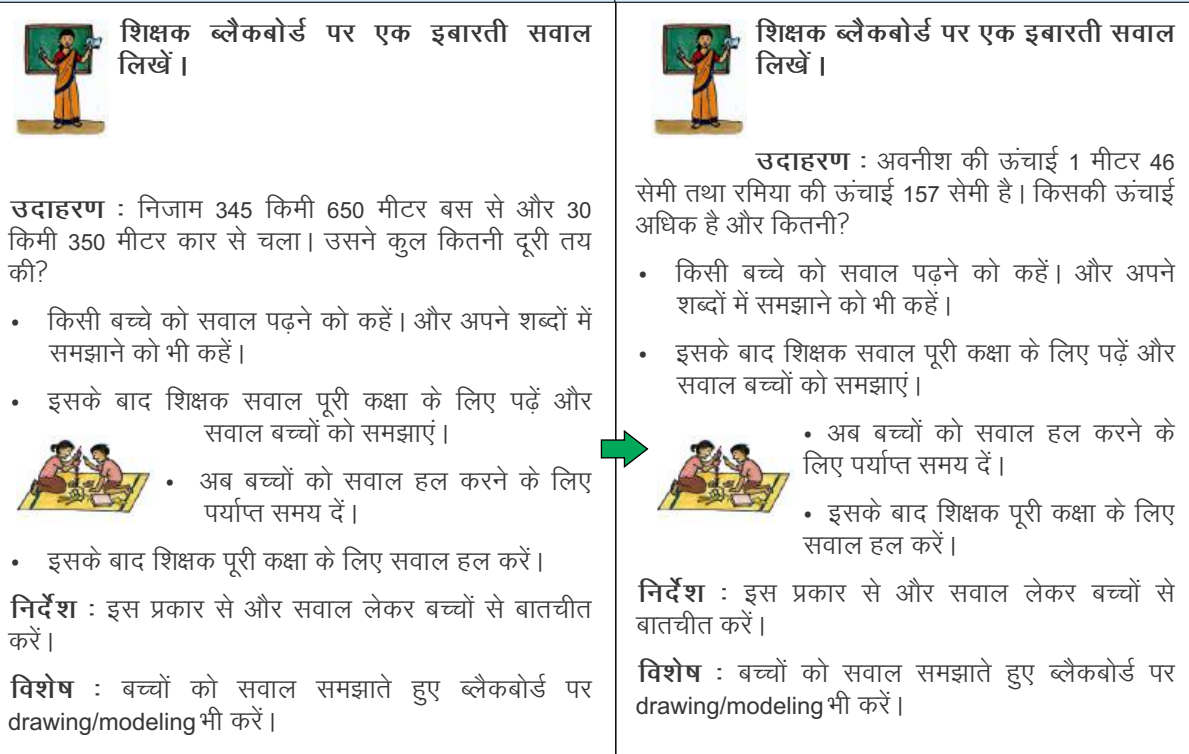 शिक्षक ब्लैकबोर्ड पर एक इबारती सवाल
लिखें।
उदाहरण : निजाम 345 किमी 650 मीटर बस से और 30
किमी 350 मीटर कार से चला। उसने कुल कितनी दूरी तय
की?
• किसी बच्चे को सवाल पढ़ने को कहें। और अपने शब्दों में
समझाने को भी कहें।
• इसके बाद शिक्षक सवाल पूरी कक्षा के लिए पढ़ें और
सवाल बच्चों को समझाएं।
• अब बच्चों को सवाल हल करने के लिए
पर्याप्त समय दें।
• इसके बाद शिक्षक पूरी कक्षा के लिए सवाल हल करें।
निर्देश : इस प्रकार से और सवाल लेकर बच्चों से बातचीत
करें।
विशेष : बच्चों को सवाल समझाते हुए ब्लैकबोर्ड पर
drawing/modeling भी करें।
शिक्षक ब्लैकबोर्ड पर एक इबारती सवाल
लिखें।
उदाहरण : अवनीश की ऊंचाई 1 मीटर 46
सेमी तथा रमिया की ऊंचाई 157 सेमी है। किसकी ऊंचाई
अधिक है और कितनी?
• किसी बच्चे को सवाल पढ़ने को कहें। और अपने
शब्दों में समझाने को भी कहें।
• इसके बाद शिक्षक सवाल पूरी कक्षा के लिए पढ़ें और
सवाल बच्चों को समझाएं।
• अब बच्चों को सवाल हल करने के
लिए पर्याप्त समय दें।
• इसके बाद शिक्षक पूरी कक्षा के लिए
सवाल हल करें।
निर्देश : इस प्रकार से और सवाल लेकर बच्चों से
बातचीत करें।
विशेष : बच्चों को सवाल समझाते हुए ब्लैकबोर्ड पर
drawing/modeling भी करें।